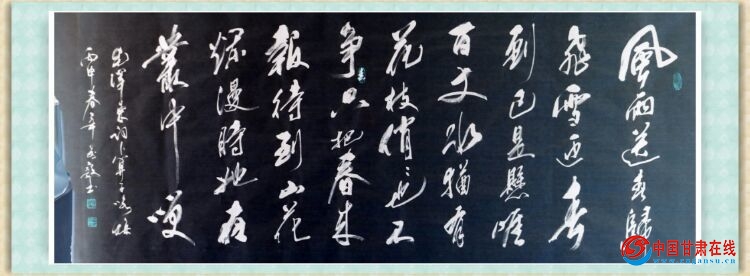 風雨送春歸
飛雪迎春
到已是懸崖
百丈冰猶有
花枝俏俏也不
争只把春来
報待到山花
爛漫時她在
叢中笑
毛澤東詞卜算子咏梅
丙申春
中国甘肃在线
www.cngansu.cn